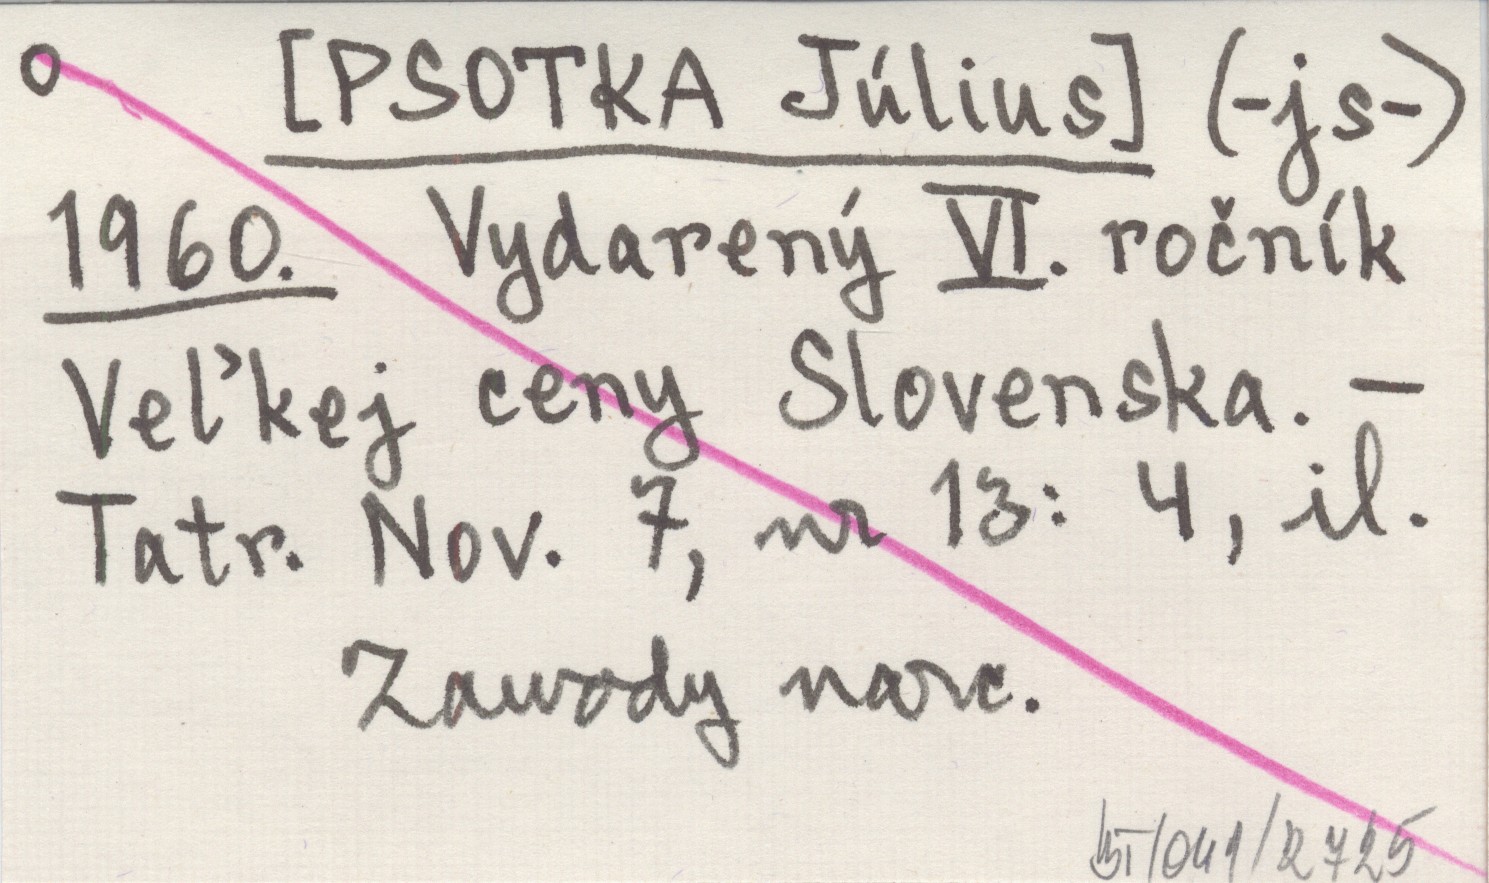 o [PSOTKA Július] (-js-)
1960. Vydarený VI. ročník
Veľkej ceny Slovenska. –
Tatr. Nov. 7, nr 13: 4, il.
Zawody narc.
/041/2725